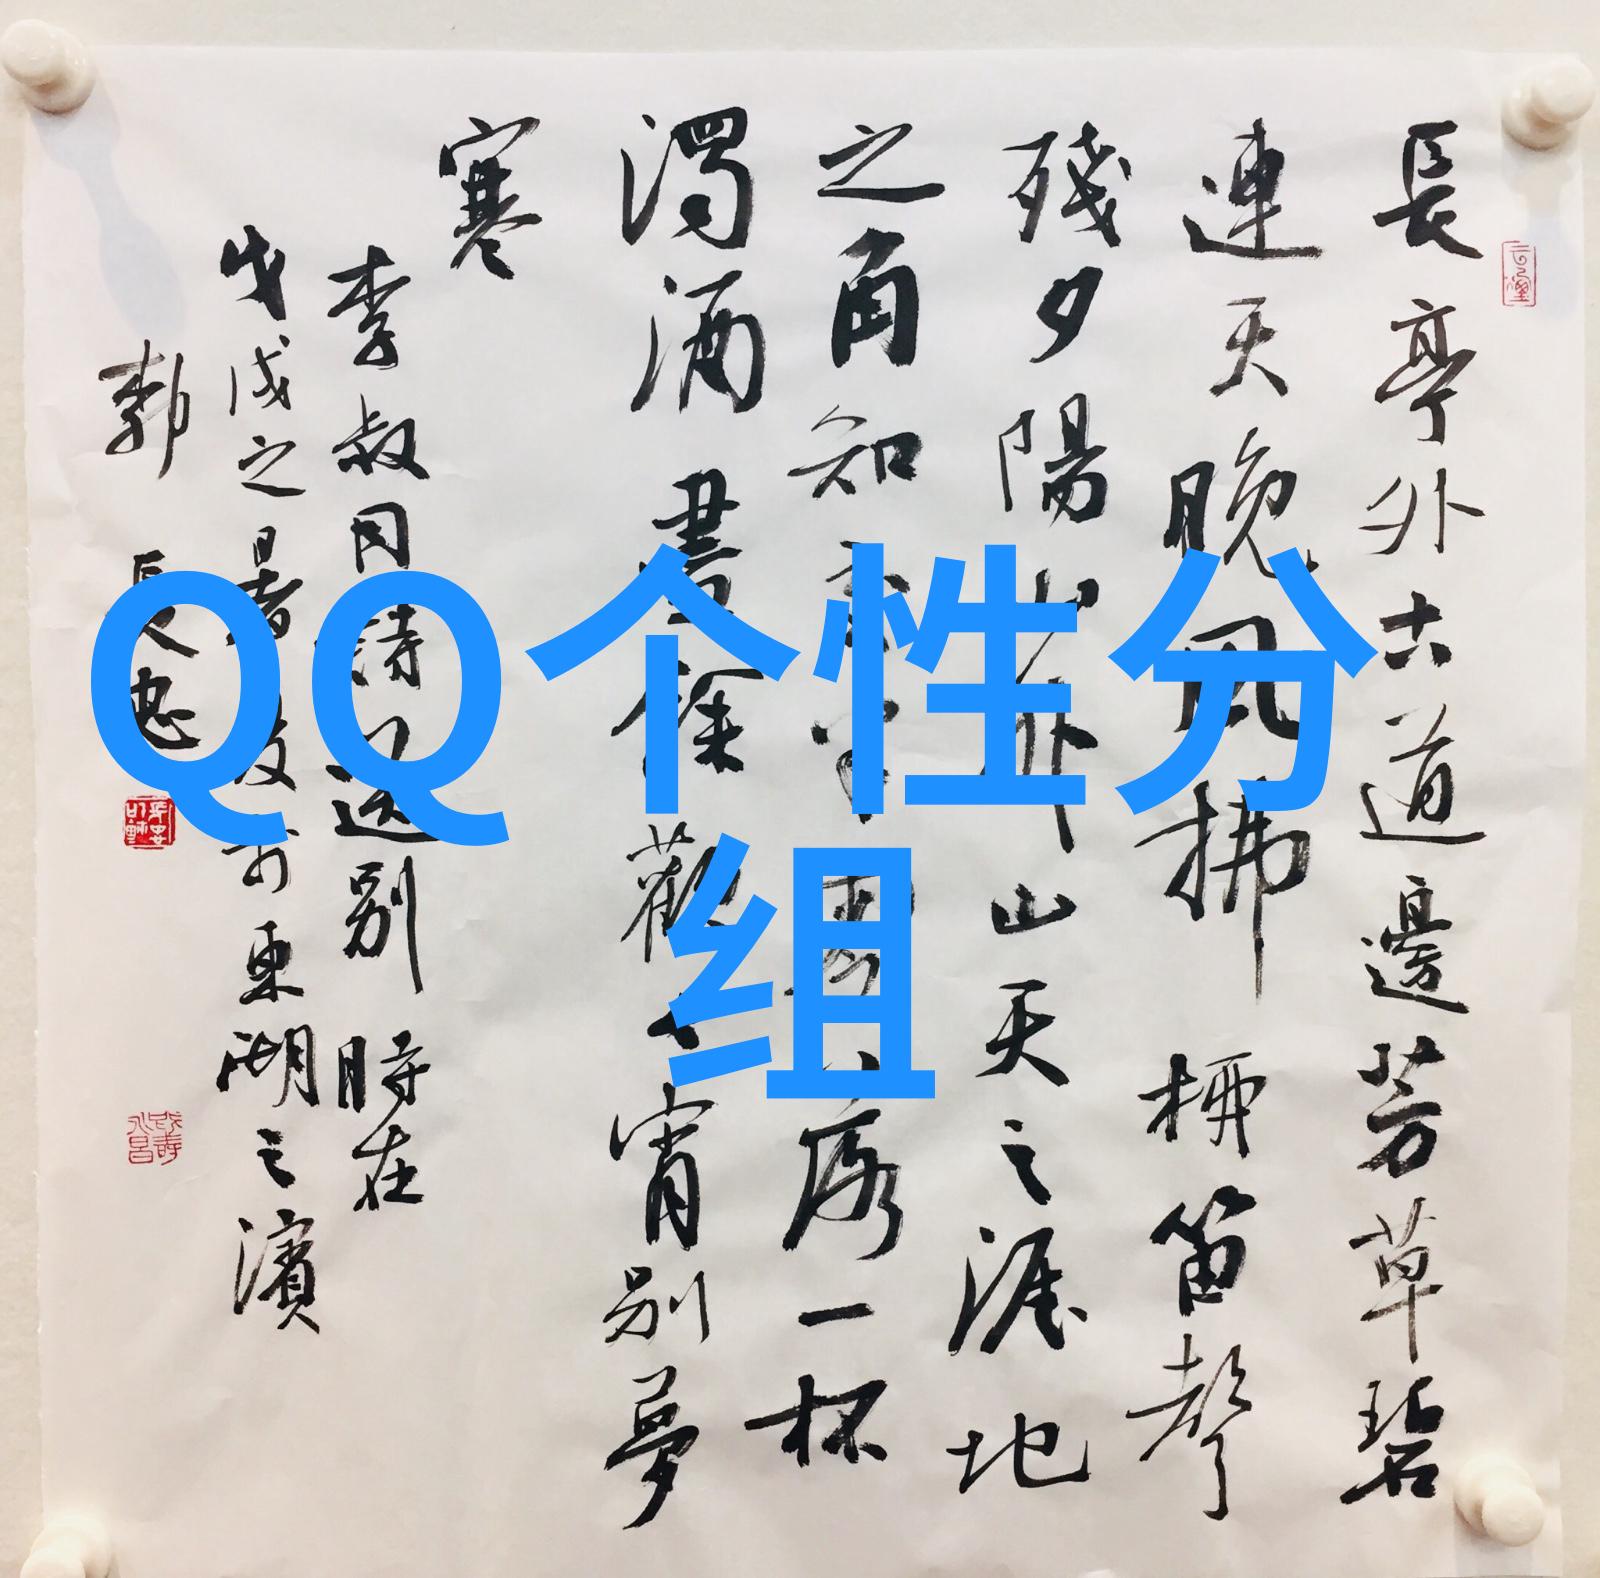 QQ个性分
组
長亭外古道邊芳草碧
連天晚風拂柳笛聲
殘夕陽山外山天之涯地
之角知交半零落一杯
濁酒盡餘歡今宵別夢
寒
李叔同詩 送別 時在
戊戌之暑 於東湖之濱